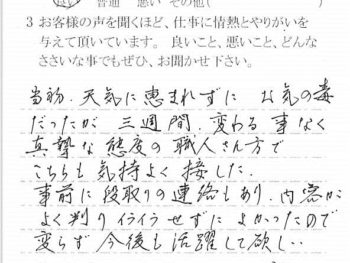 普通 悪い その他( )
3 お客様の声を聞くほど、仕事に情熱とやりがいを
与えて頂いています。 良いこと、悪いこと、どんな
ささいな事でもぜひ、お聞かせ下さい。
当初、天気に恵まれずに お気の毒
だったが 三週間、変わる事なく
真摯な態度の職人さん方で
こちらも気持よく接した。
事前に段取りの連絡もあり、内容が
よく判りイライラせずに よかったので
変らず今後も活躍して欲し…